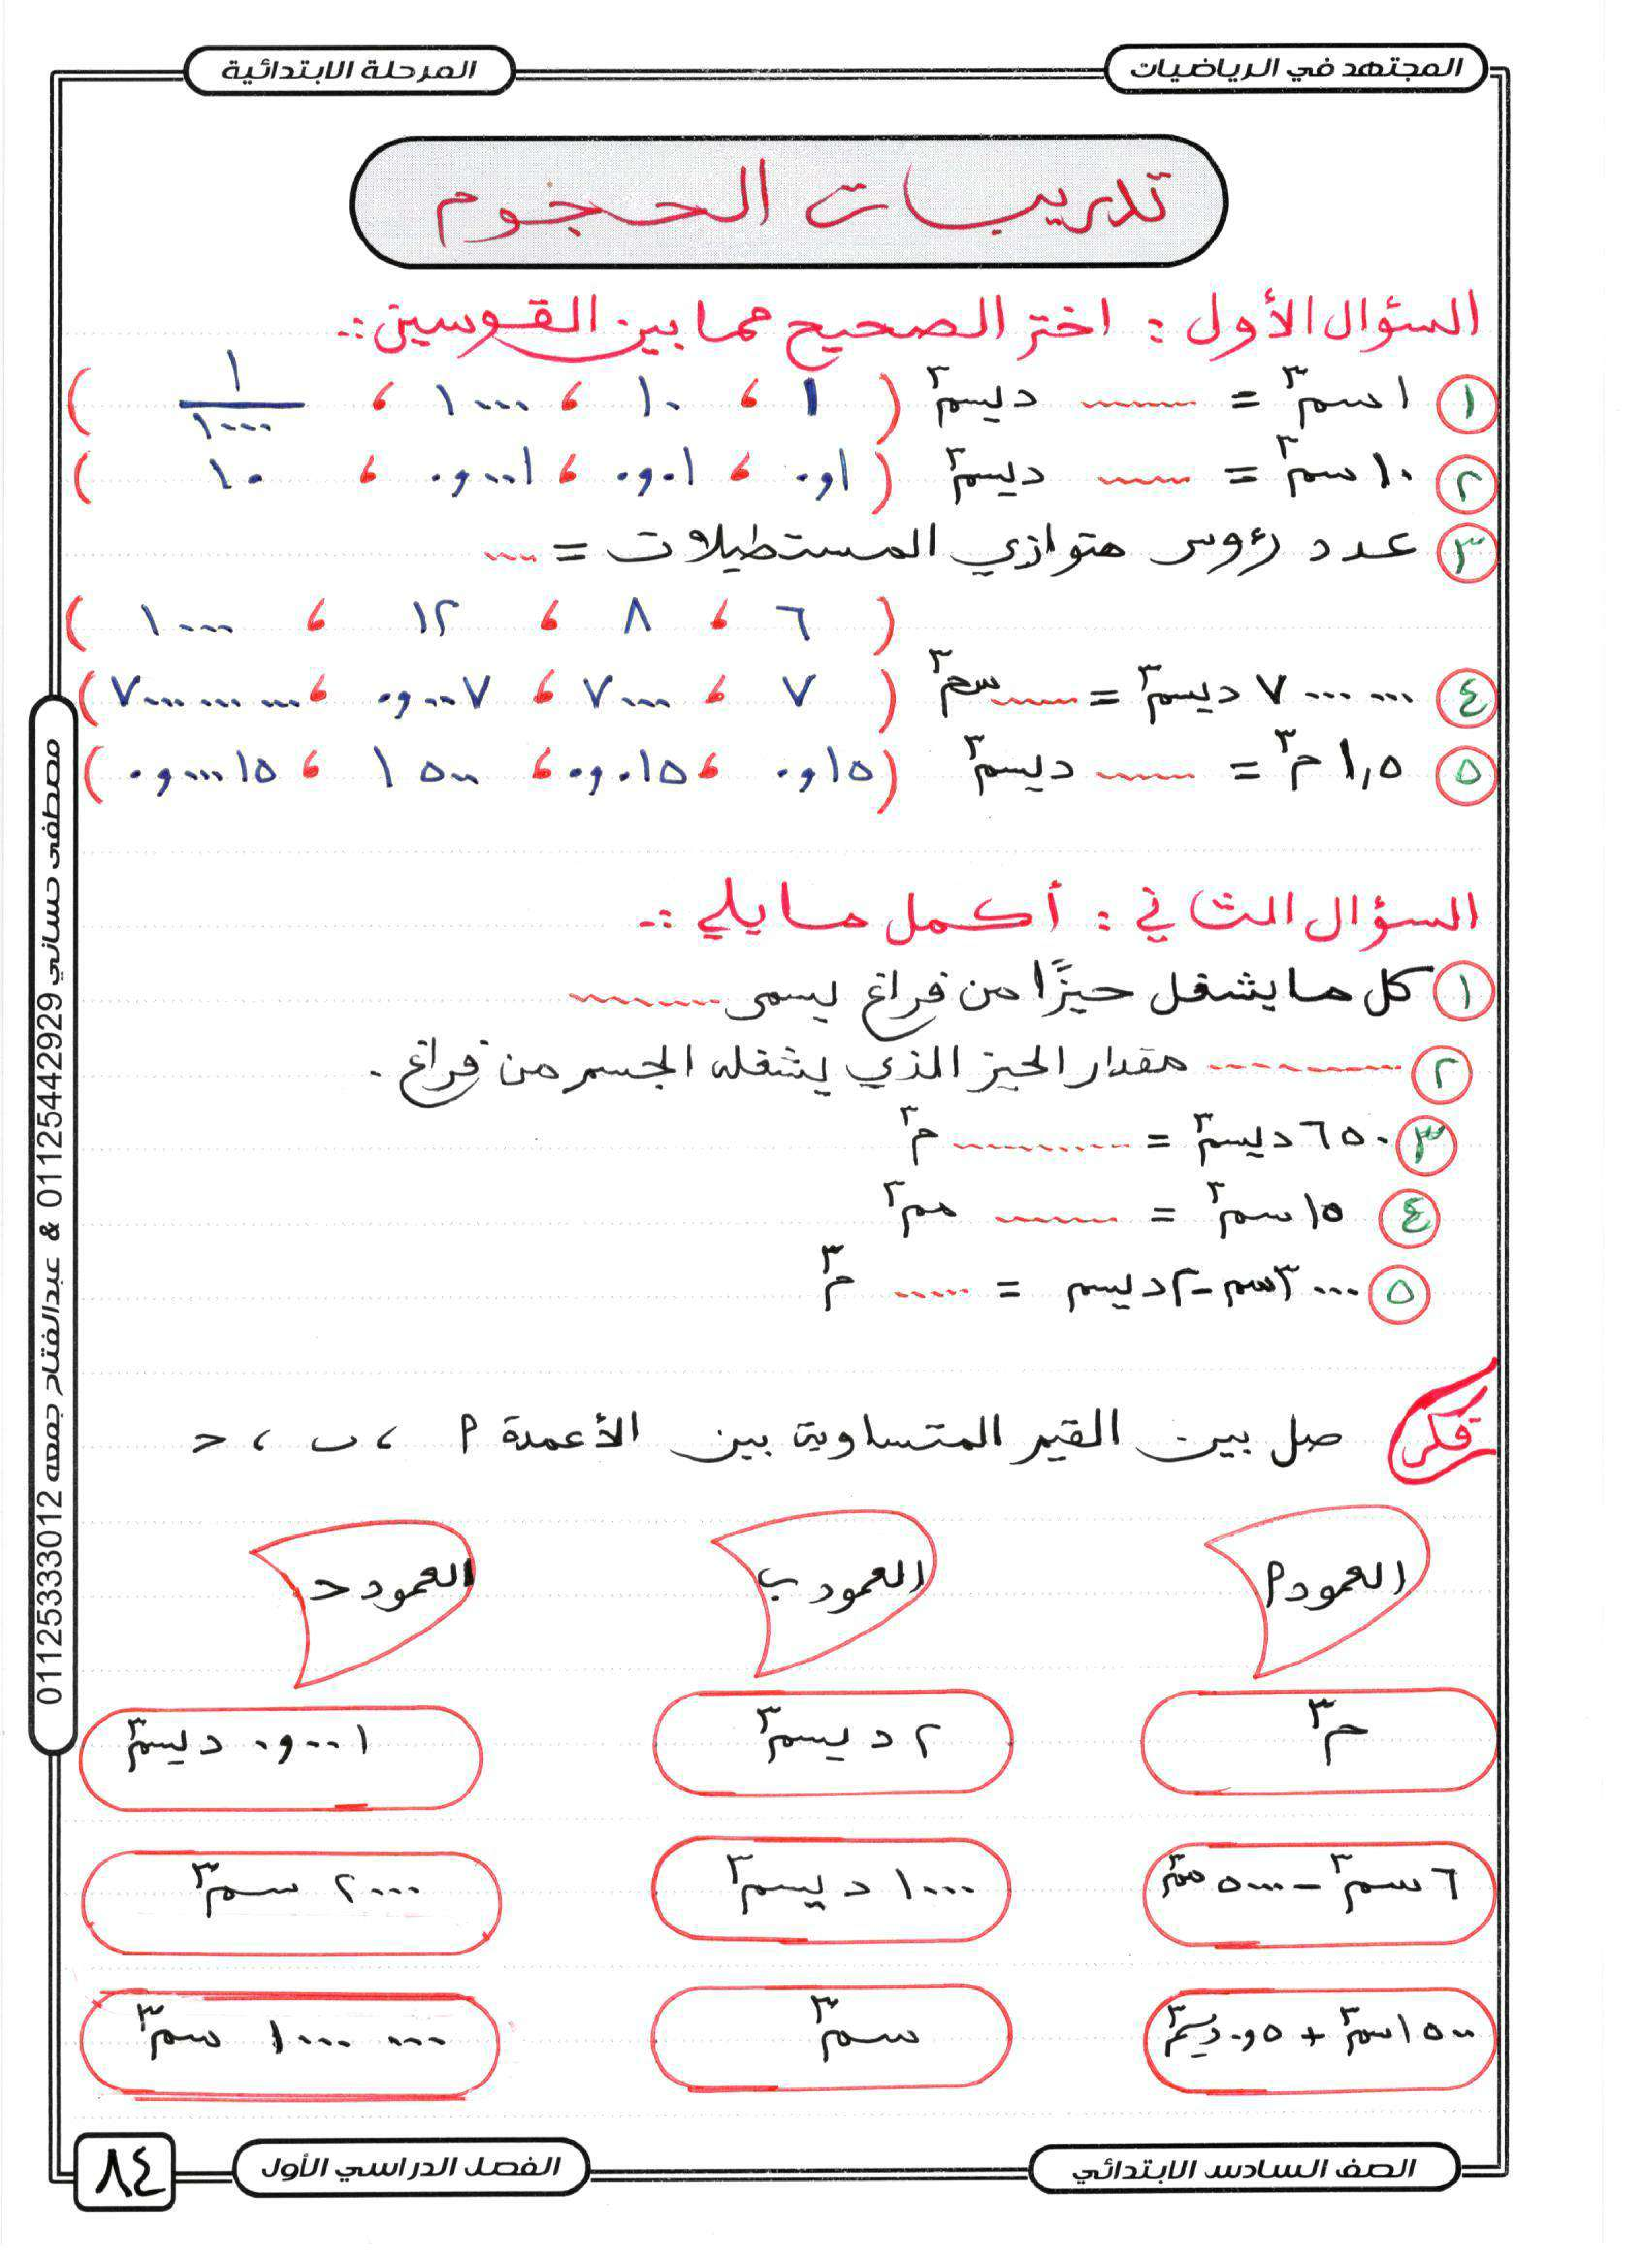 المجتهد في الرياضيات
المرحلة الابتدائية
تدريبات الحجوم
السؤال الأول : اختر الصحيح مما بين القوسين :-
١ ١ سم٣ = ...... ديسم٣ ( ١ ، ١٠ ، ١٠٠٠ ، ١/١٠٠٠ )
٢ ١٠ سم٣ = ...... ديسم٣ ( ٠و١ ، ٠و٠١ ، ٠و٠٠١ ، ١٠ )
٣ عدد رؤوس متوازي المستطيلات = ....
( ٦ ، ٨ ، ١٢ ، ١٠٠٠ )
٤ ٧٠٠٠٠٠٠ ديسم٣ = ...... سم٣ ( ٧ ، ٧٠٠٠ ، ٠و٠٠٧ ، ٧٠٠٠٠٠٠٠٠٠ )
٥ ١,٥ م٣ = ...... ديسم٣ ( ٠و١٥ ، ٠و٠١٥ ، ١٥٠٠ ، ٠و٠٠٠١٥ )
السؤال الثاني : أكمل ما يلي :-
١ كل ما يشغل حيزًا من فراغ يسمى ........
٢ ........ مقدار الحيز الذي يشغله الجسم من فراغ .
٣ ٦٥٠ ديسم٣ = ........ م٣
٤ ١٥ سم٣ = ...... مم٣
٥ ٣٠٠٠ سم - ٢ ديسم = ..... م٣
فكر صل بين القيم المتساوية بين الأعمدة ٩ ، ب ، ح
العمود ٩
العمود ب
العمود ح
م٣
٢ ديسم٣
٠و٠٠١ ديسم٣
٦ سم٣ - ٥٠٠٠ مم٣
١٠٠٠ ديسم٣
٢٠٠٠ سم٣
١٥٠٠ سم٣ + ٠و٥ ديسم٣
سم٣
١٠٠٠٠٠٠ سم٣
مصطفى حساني 01125442929 & عبدالفتاح جمعه 01125333012
الصف السادس الابتدائي
الفصل الدراسي الأول
٨٤